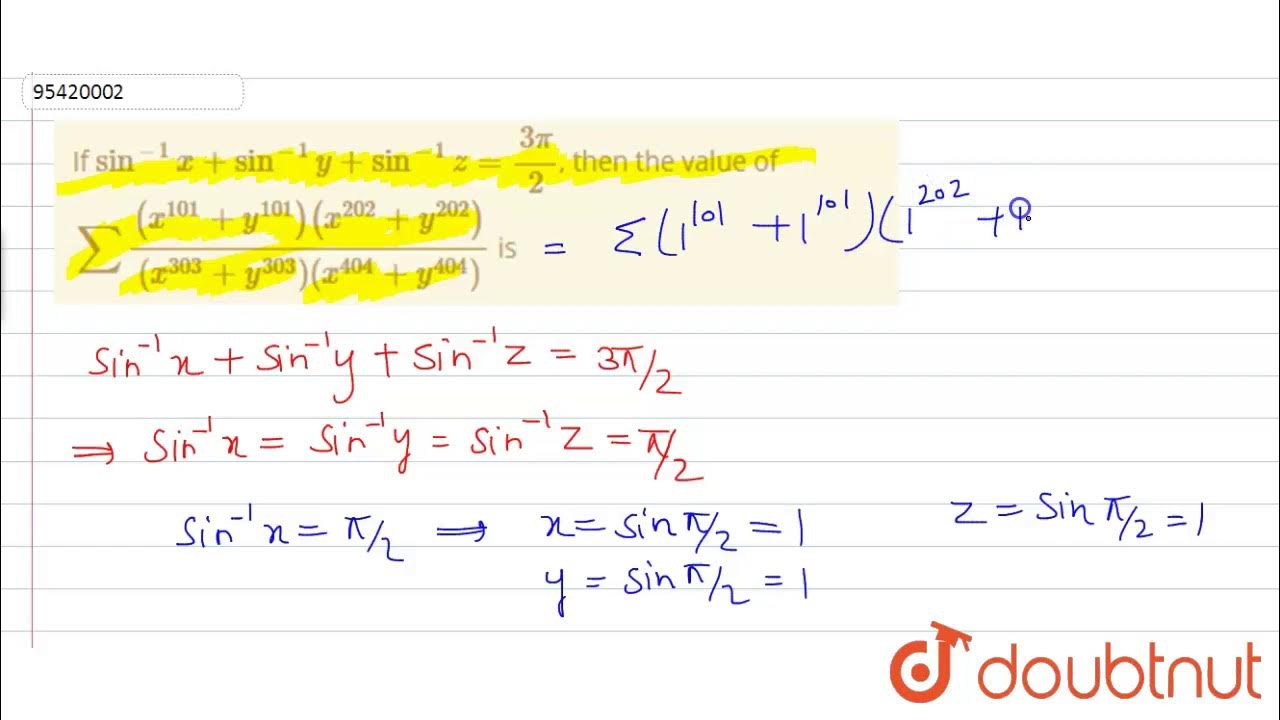 95420002
If sin⁻¹ x + sin⁻¹ y + sin⁻¹ z = 3π/2, then the value of
∑ (x¹⁰¹ + y¹⁰¹)(x²⁰² + y²⁰²) / (x³⁰³ + y³⁰³)(x⁴⁰⁴ + y⁴⁰⁴) is = Σ(1¹⁰¹ + 1¹⁰¹)(1²⁰² +
Sin⁻¹x + Sin⁻¹y + Sin⁻¹z = 3π/2
⇒ Sin⁻¹x = Sin⁻¹y = Sin⁻¹z = π/2
Sin⁻¹x = π/2 ⇒ x = Sin π/2 = 1 z = Sin π/2 = 1
y = Sin π/2 = 1
doubtnut